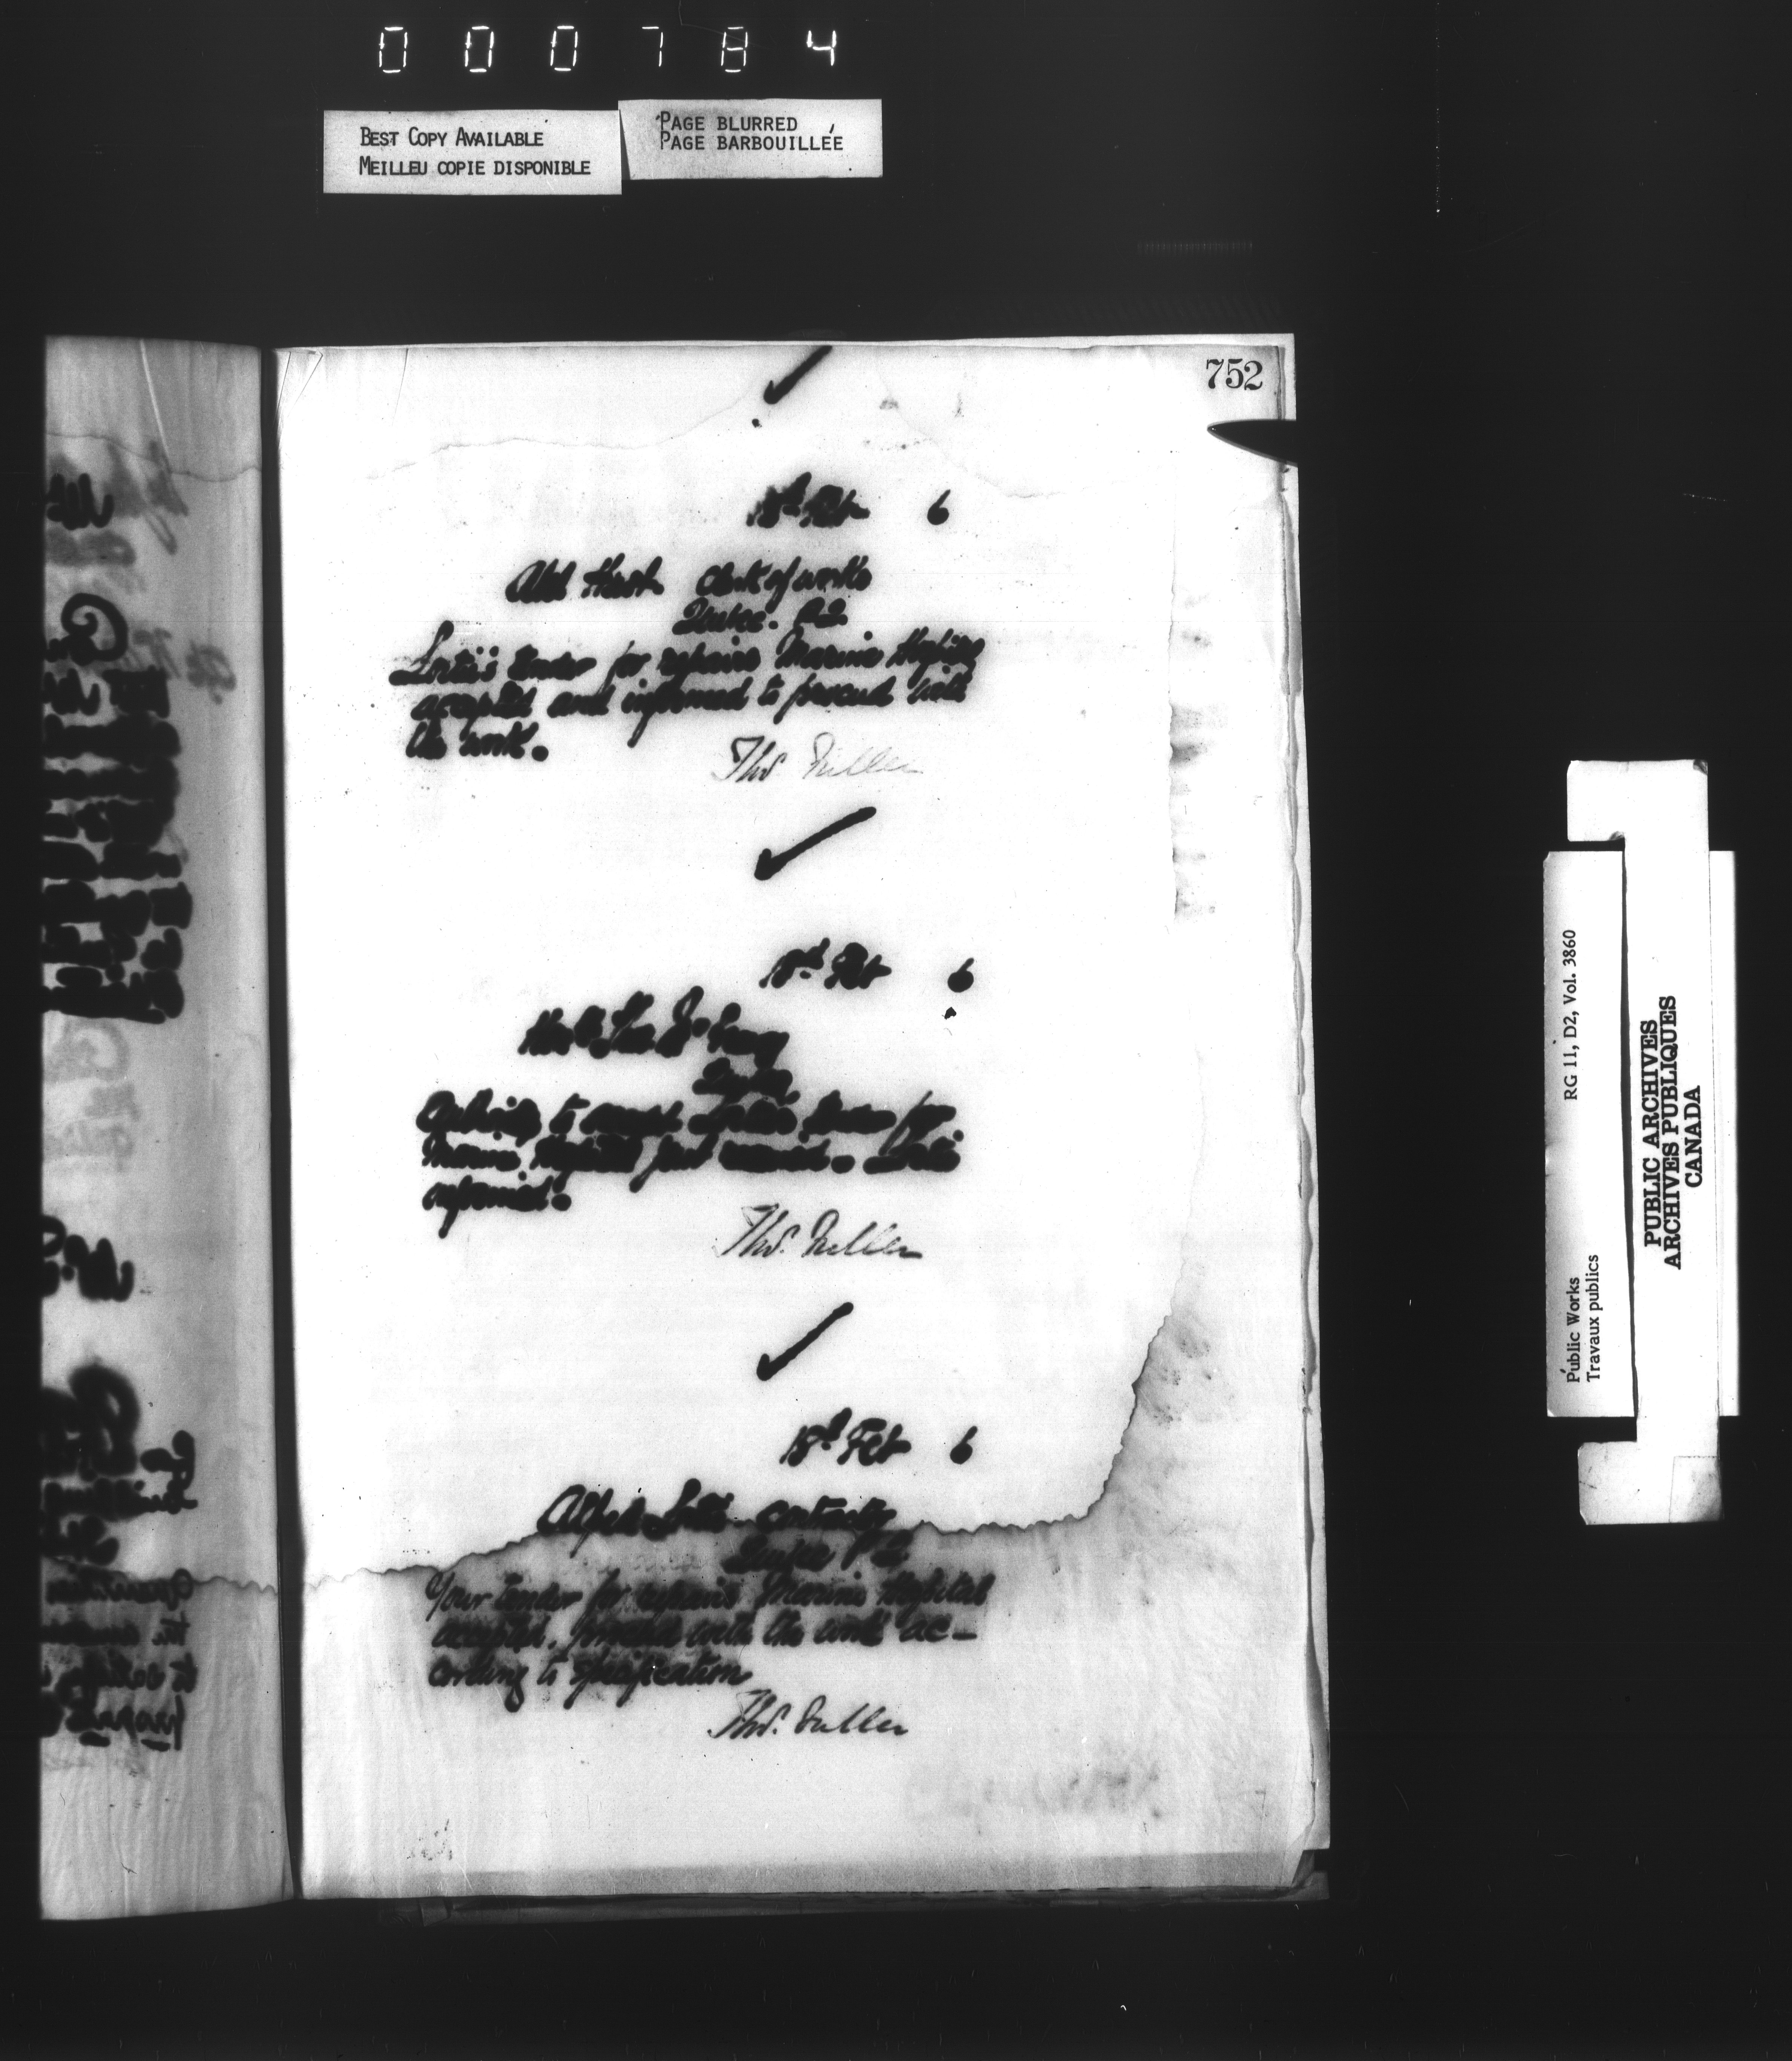 000784
BEST COPY AVAILABLE
MEILLEU COPIE DISPONIBLE
PAGE BLURRED
PAGE BARBOUILLÉE
752
18th Feb 6
Clerk of works
Quebec. P.Q.
Lortie's tender for repairs Marine Hospital
accepted and informed to proceed with
the work.
Thos Fuller
18th Feb 6
Quebec
to accept Lortie's tender for
Marine Hospital just received. Lortie
informed.
Thos. Fuller
18th Feb 6
Alfred Lortie contractor
Quebec P.Q.
Your tender for repairs Marine Hospital
accepted, proceed with the work ac-
cording to specification
Thos. Fuller
RG 11, D2, Vol. 3860
Public Works
Travaux publics
PUBLIC ARCHIVES
ARCHIVES PUBLIQUES
CANADA